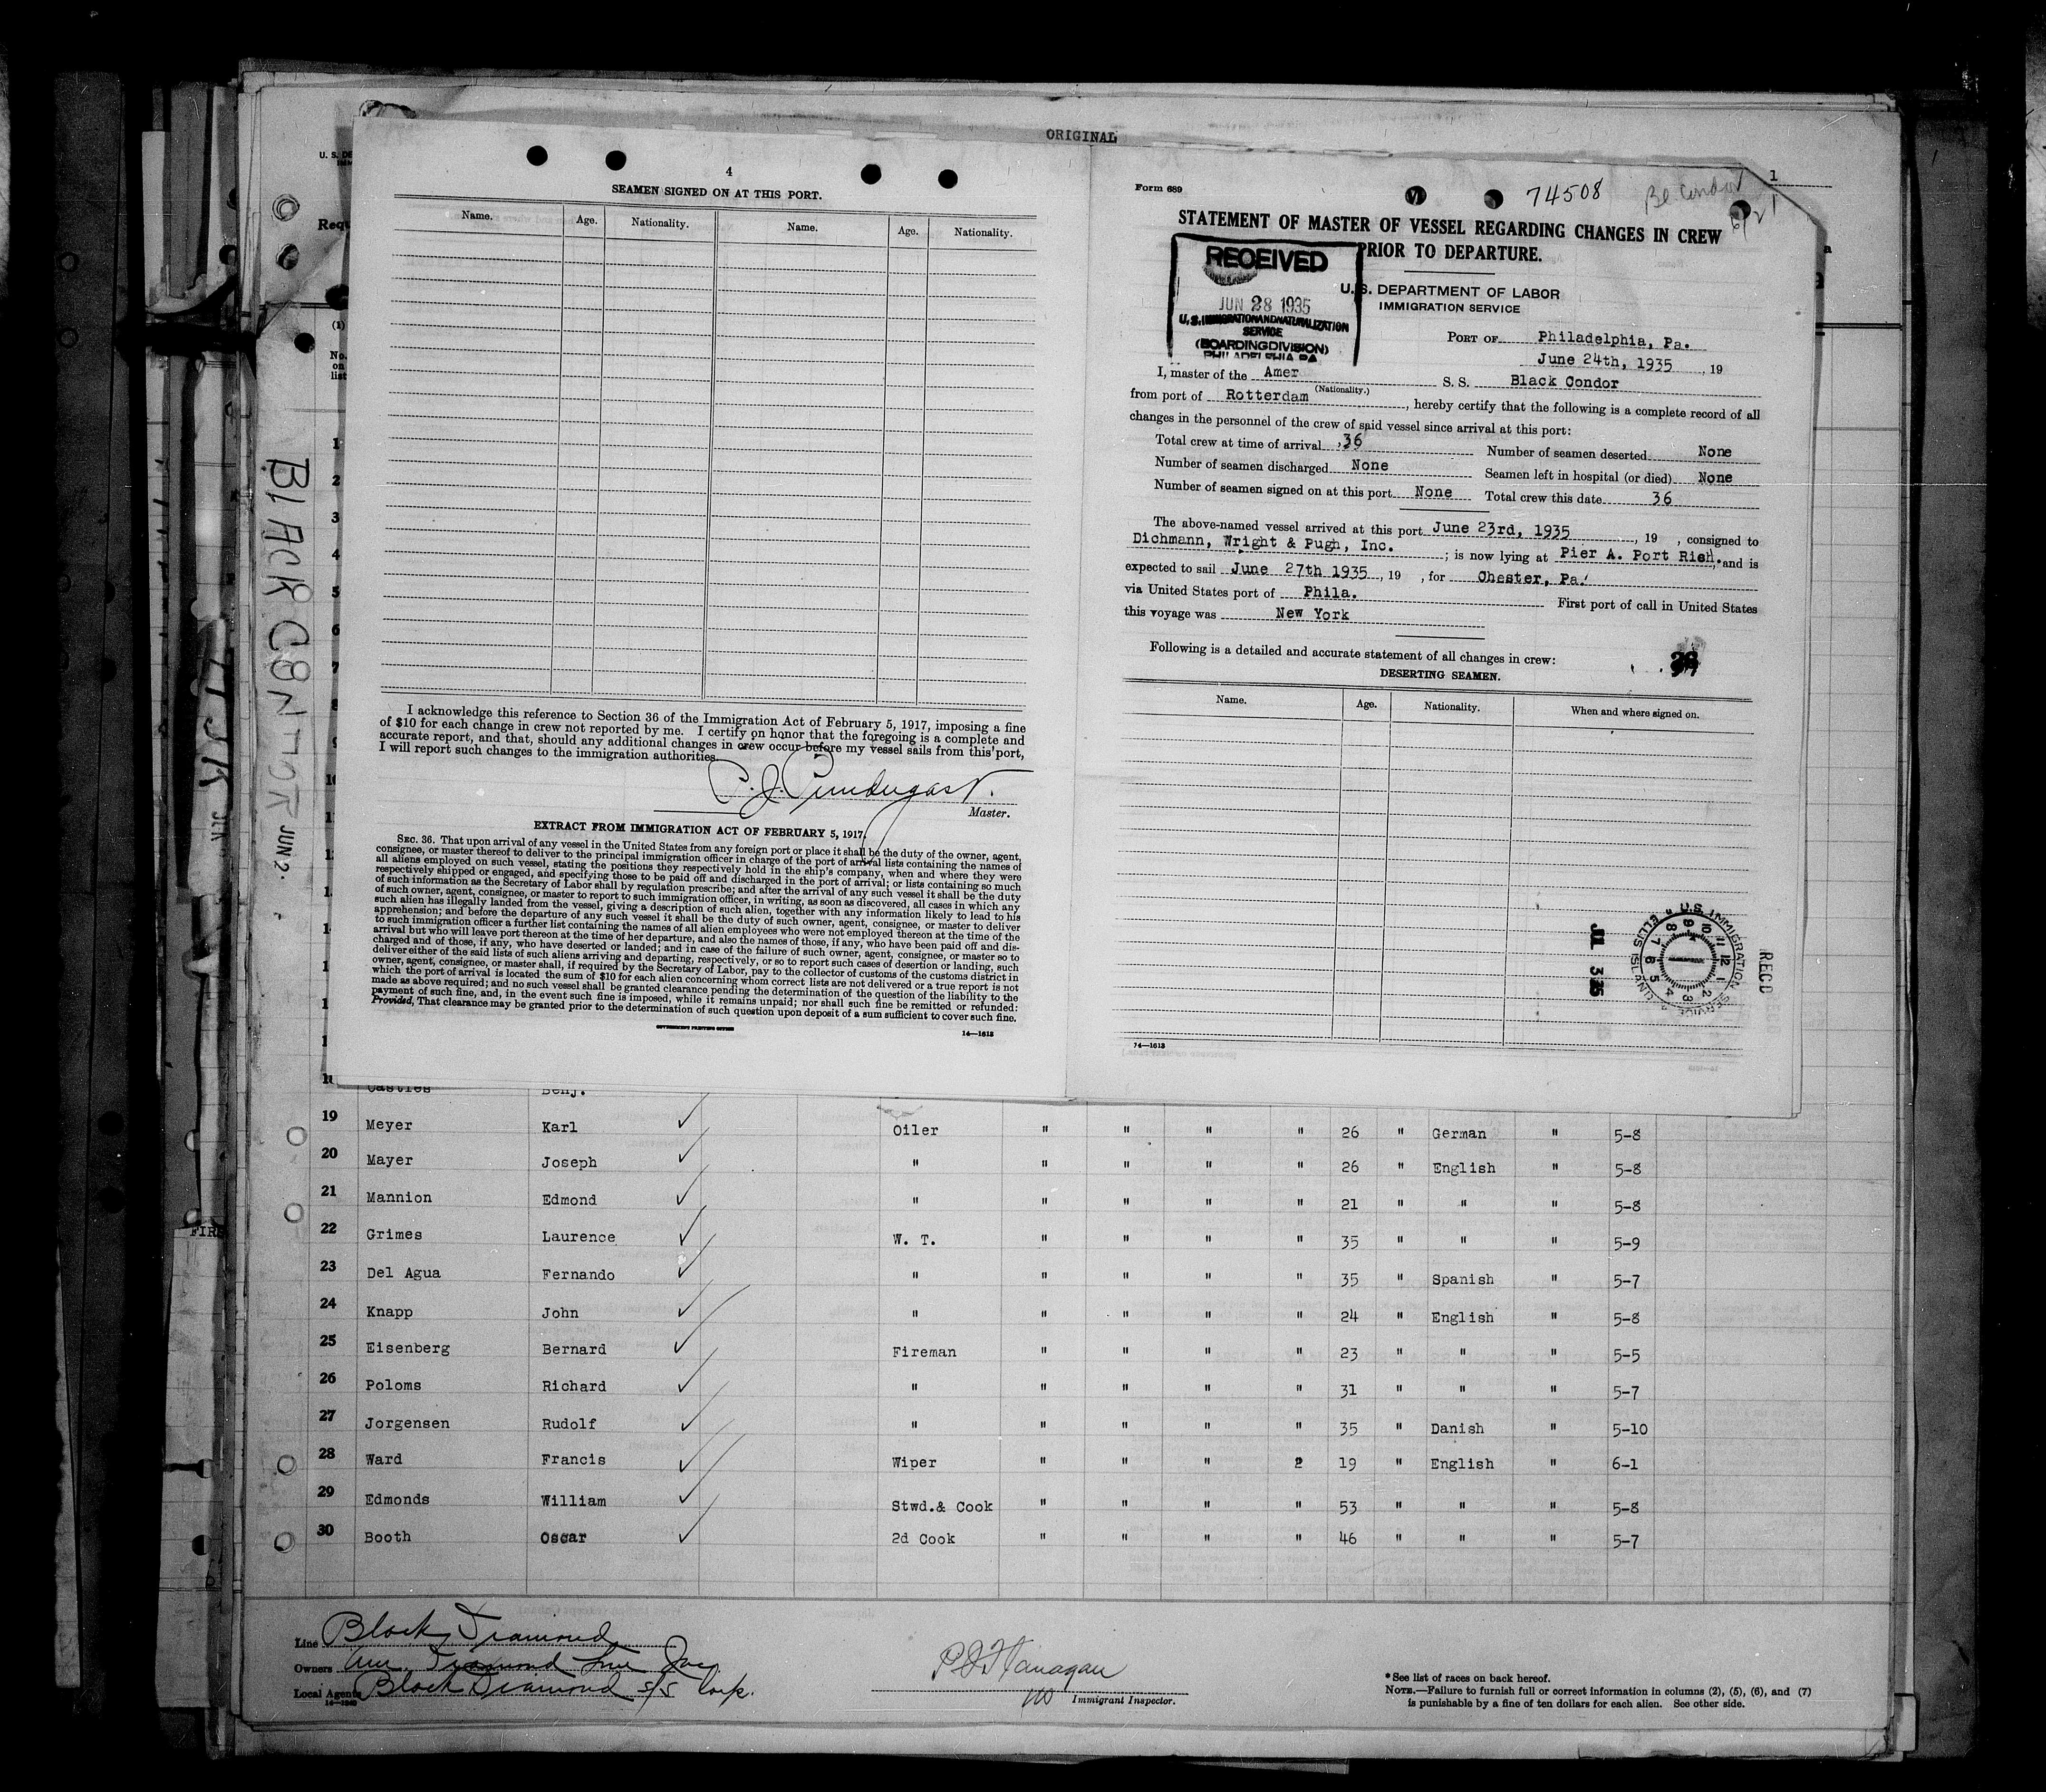 ORIGINAL
U. S. DE
Requ
(1)
No.
on
list
BLACK CONDOR JUN 2
4
SEAMEN SIGNED ON AT THIS PORT.
Name. Age. Nationality. Name. Age. Nationality.
I acknowledge this reference to Section 36 of the Immigration Act of February 5, 1917, imposing a fine
of $10 for each change in crew not reported by me. I certify on honor that the foregoing is a complete and
accurate report, and that, should any additional changes in crew occur before my vessel sails from this port,
I will report such changes to the immigration authorities.
Master.
EXTRACT FROM IMMIGRATION ACT OF FEBRUARY 5, 1917.
SEC. 36. That upon arrival of any vessel in the United States from any foreign port or place it shall be the duty of the owner, agent,
consignee, or master thereof to deliver to the principal immigration officer in charge of the port of arrival lists containing the names of
all aliens employed on such vessel, stating the positions they respectively hold in the ship's company, when and where they were
respectively shipped or engaged, and specifying those to be paid off and discharged in the port of arrival; or lists containing so much
of such information as the Secretary of Labor shall by regulation prescribe; and after the arrival of any such vessel it shall be the duty
of such owner, agent, consignee, or master to report to such immigration officer, in writing, as soon as discovered, all cases in which any
such alien has illegally landed from the vessel, giving a description of such alien, together with any information likely to lead to his
apprehension; and before the departure of any such vessel it shall be the duty of such owner, agent, consignee, or master to deliver
to such immigration officer a further list containing the names of all alien employees who were not employed thereon at the time of the
arrival but who will leave port thereon at the time of her departure, and also the names of those, if any, who have been paid off and dis-
charged and of those, if any, who have deserted or landed; and in case of the failure of such owner, agent, consignee, or master so to
deliver either of the said lists of such aliens arriving and departing, respectively, or so to report such cases of desertion or landing, such
owner, agent, consignee, or master shall, if required by the Secretary of Labor, pay to the collector of customs of the customs district in
which the port of arrival is located the sum of $10 for each alien concerning whom correct lists are not delivered or a true report is not
made as above required; and no such vessel shall be granted clearance pending the determination of the question of the liability to the
payment of such fine, and, in the event such fine is imposed, while it remains unpaid; nor shall such fine be remitted or refunded:
Provided, That clearance may be granted prior to the determination of such question upon deposit of a sum sufficient to cover such fine.
GOVERNMENT PRINTING OFFICE
14—1613
Form 689
74508
Bl Condor
1
STATEMENT OF MASTER OF VESSEL REGARDING CHANGES IN CREW
PRIOR TO DEPARTURE.
RECEIVED
JUN 28 1935
U.S. IMMIGRATION AND NATURALIZATION
SERVICE
(BOARDING DIVISION)
PHILADELPHIA PA
U. S. DEPARTMENT OF LABOR
IMMIGRATION SERVICE
PORT OF Philadelphia, Pa.
June 24th, 1935, 19
I, master of the Amer S. S. Black Condor
(Nationality.)
from port of Rotterdam, hereby certify that the following is a complete record of all
changes in the personnel of the crew of said vessel since arrival at this port:
Total crew at time of arrival 36 Number of seamen deserted None
Number of seamen discharged None Seamen left in hospital (or died) None
Number of seamen signed on at this port None Total crew this date 36
The above-named vessel arrived at this port June 23rd, 1935, 19 , consigned to
Dichmann, Wright & Pugh, Inc. ; is now lying at Pier A. Port Rich. and is
expected to sail June 27th 1935, 19 , for Chester, Pa.
via United States port of Phila. First port of call in United States
this voyage was New York
Following is a detailed and accurate statement of all changes in crew:
DESERTING SEAMEN.
Name. Age. Nationality. When and where signed on.
U.S. IMMIGRATION SERVICE ELLIS ISLAND
JUL 3 35
REC'D
74—1613
Castles Benj.
19 Meyer Karl Oiler " " " " 26 " German " 5-8
20 Mayer Joseph " " " " " 26 " English " 5-8
21 Mannion Edmond " " " " " 21 " " " 5-8
22 Grimes Laurence W. T. " " " " 35 " " " 5-9
23 Del Agua Fernando " " " " " 35 " Spanish " 5-7
24 Knapp John " " " " " 24 " English " 5-8
25 Eisenberg Bernard Fireman " " " " 23 " " " 5-5
26 Poloms Richard " " " " " 31 " " " 5-7
27 Jorgensen Rudolf " " " " " 35 " Danish " 5-10
28 Ward Francis Wiper " " " 2 19 " English " 6-1
29 Edmonds William Stwd.& Cook " " " " 53 " " " 5-8
30 Booth Oscar 2d Cook " " " " 46 " " " 5-7
Line Black Diamond
Owners Am. Diamond Line Inc
Local Agents Black Diamond S/S Corp.
P J Flanagan
Immigrant Inspector.
*See list of races on back hereof.
NOTE.—Failure to furnish full or correct information in columns (2), (5), (6), and (7)
is punishable by a fine of ten dollars for each alien. See other side.